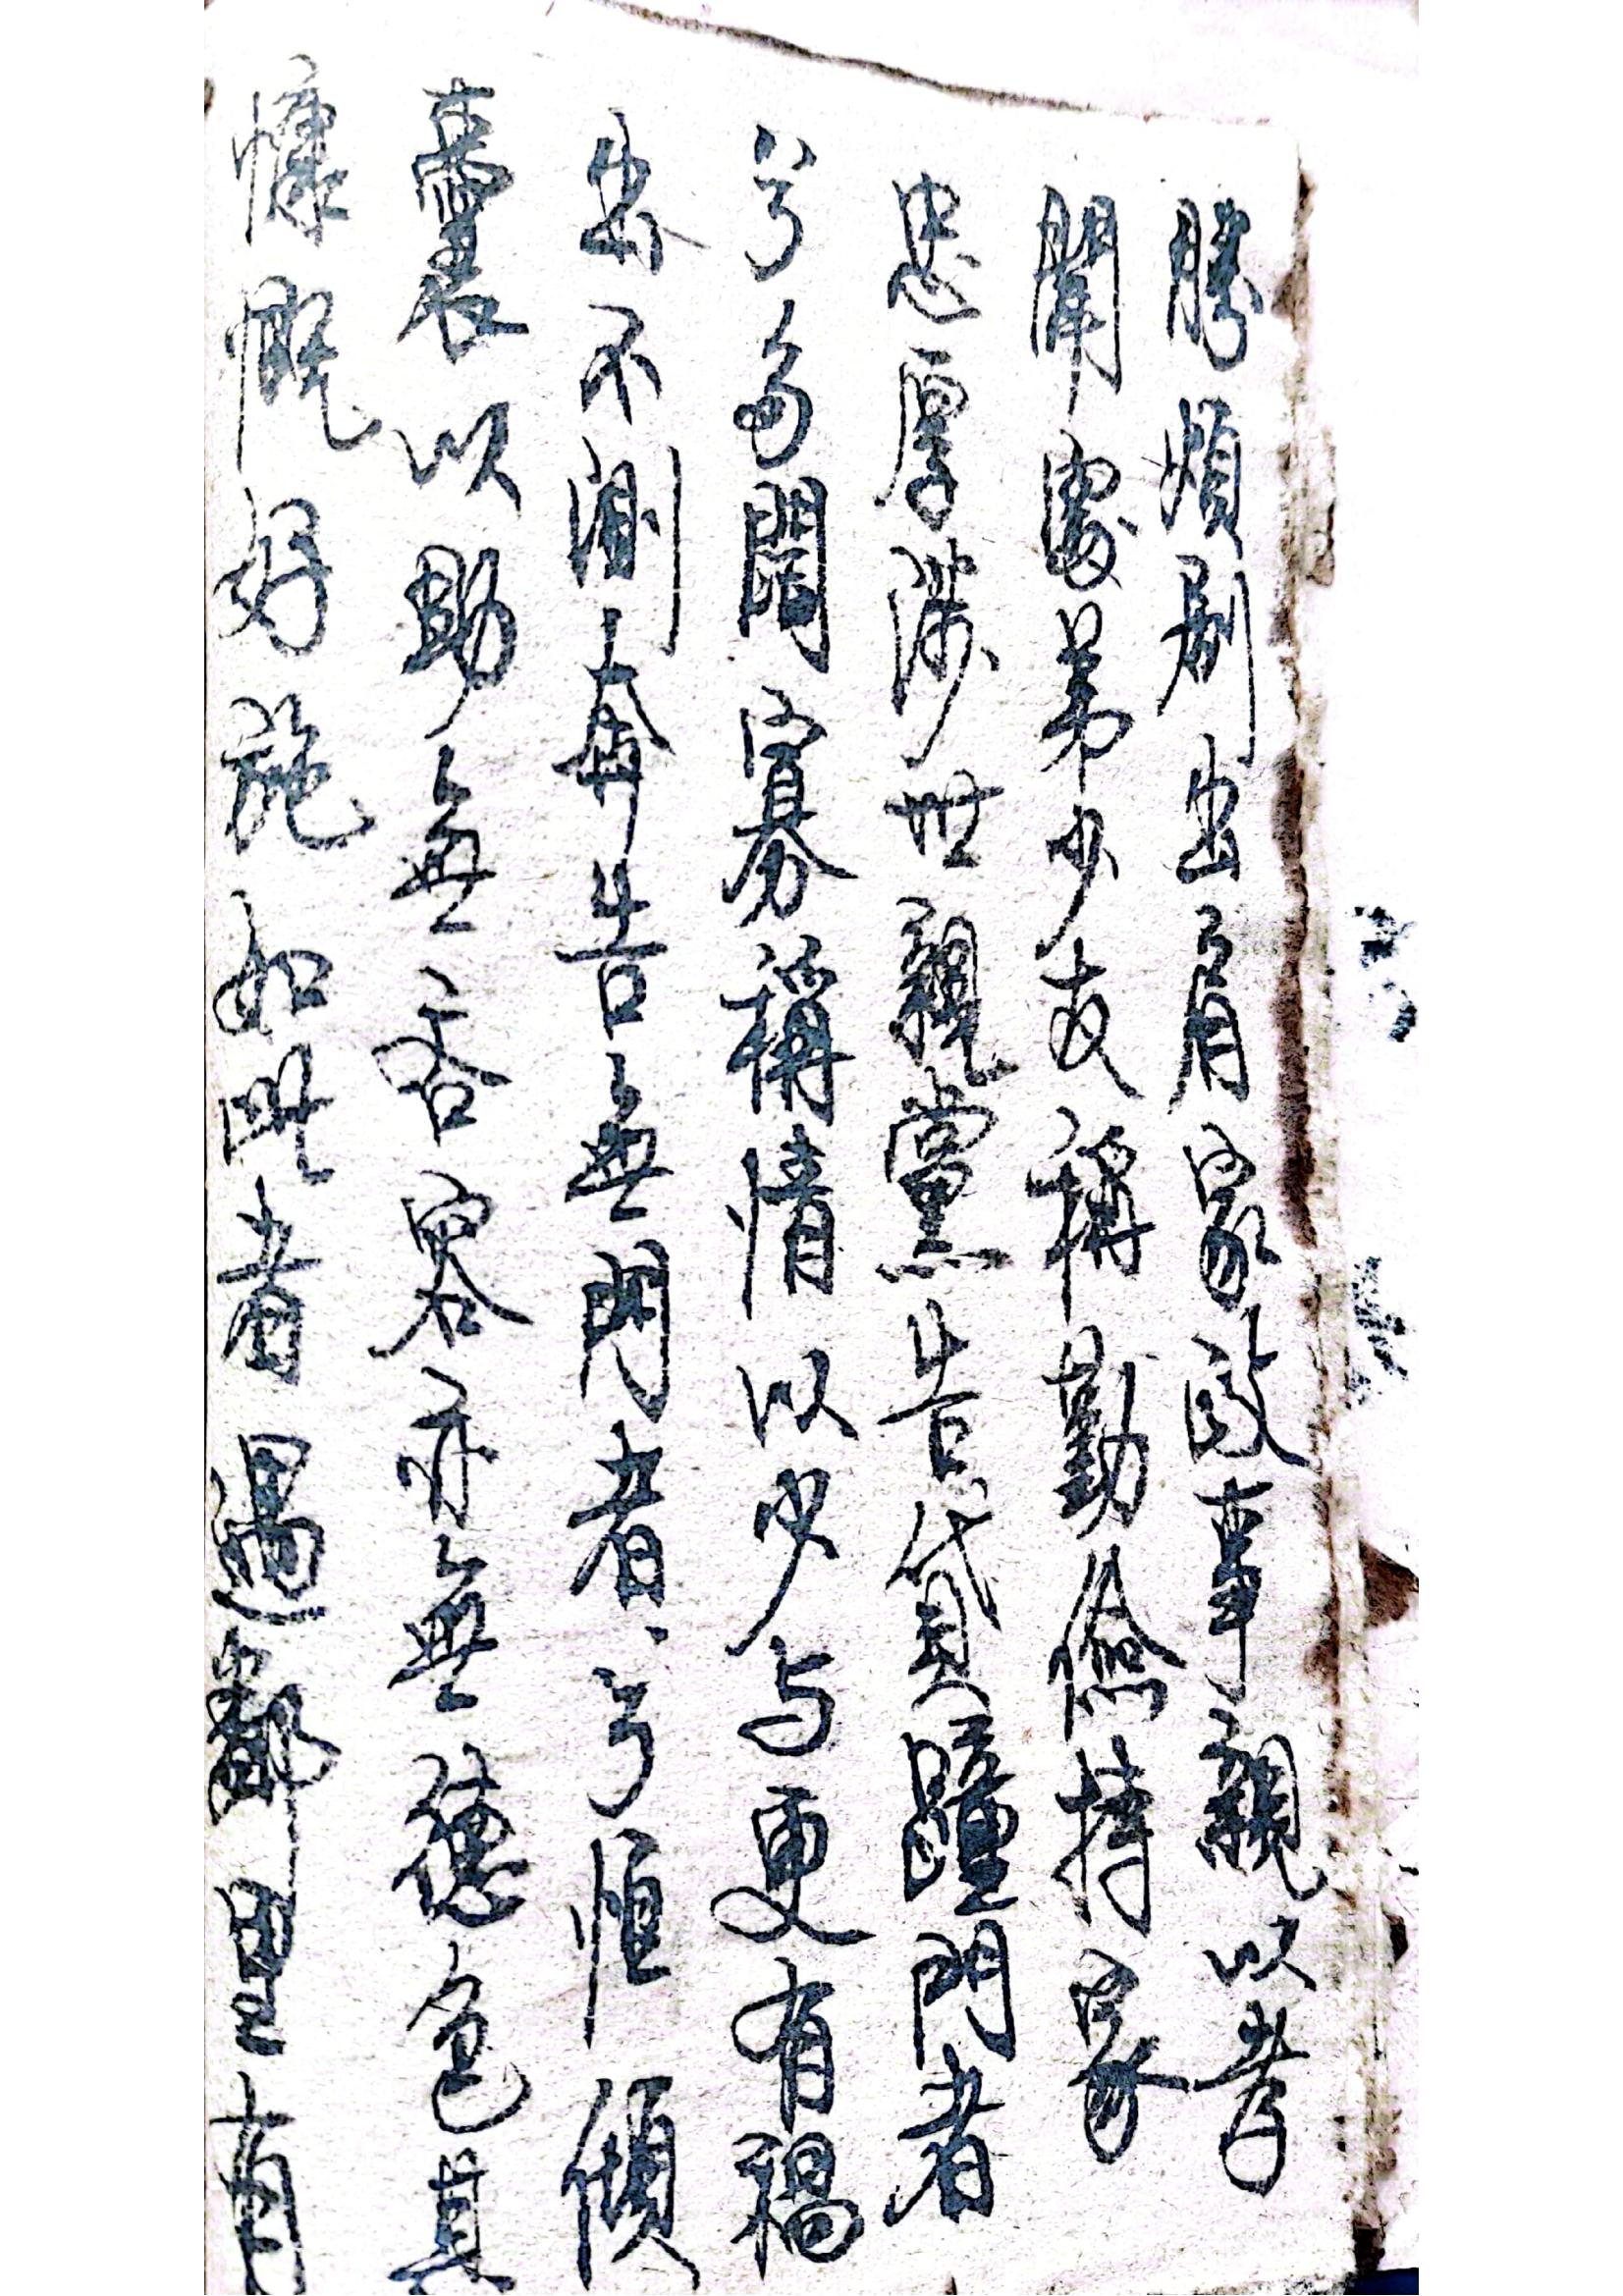 勝煩劇出肩家政事親以孝
聞處弟少友稱勤儉持家
忠厚涉世親黨告貸踵門者
兮多閱寡稱情以少与更有禍
出不測奔告無門者兮恒傾
囊以助無吝容亦無德色其
慷慨好施如此者遇鄰里有